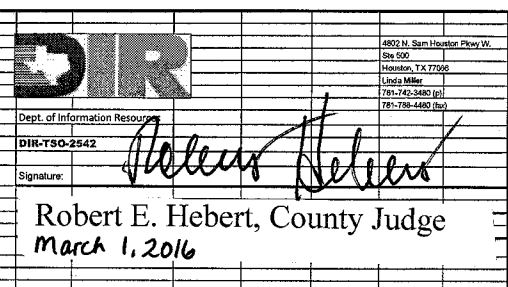 DIR
4802 N. Sam Houston Pkwy W.
Ste 500
Houston, TX 77066
Linda Miller
781-742-3480 (p)
781-788-4480 (fax)
Dept. of Information Resources
DIR-TSO-2542
Signature: Robert Hebert
Robert E. Hebert, County Judge
March 1, 2016